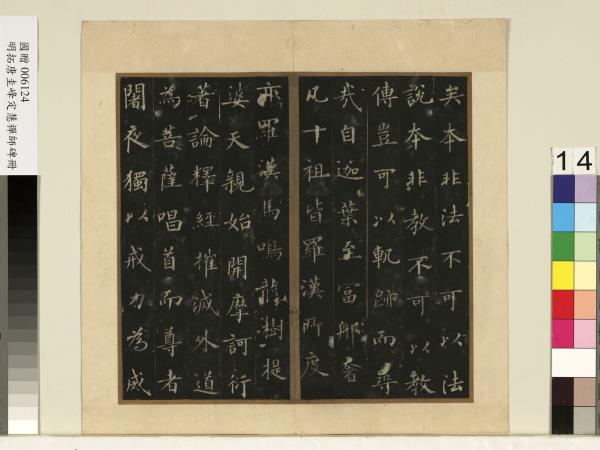 國贈 006124
明拓唐圭峰定慧禪師碑冊
矣本非法不可以法
說本非教不可以教
傳豈可以軌跡而尋
哉自迦葉至富那奢
凡十祖皆羅漢所度
亦羅漢馬鳴龍樹提
婆天親始開摩訶衍
著論釋經摧滅外道
為菩薩唱首而尊者
闍夜獨以戒力為威
14